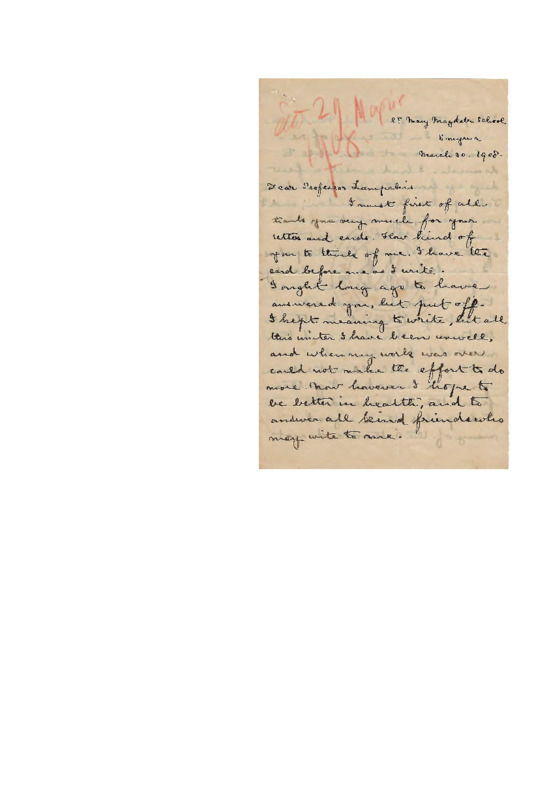 29 Μαρτ
1908
St Mary Magdalen School
Smyrna
March 30. 1908.
Dear Professor Lampakis
I must first of all
thank you very much for your
letter and cards. How kind of
you to think of me. I have the
card before me as I write.
I ought long ago to have
answered you, but put off.
I kept meaning to write, but all
this winter I have been unwell,
and when my work was over
could not make the effort to do
more. Now however I hope to
be better in health, and to
answer all kind friends who
may write to me.